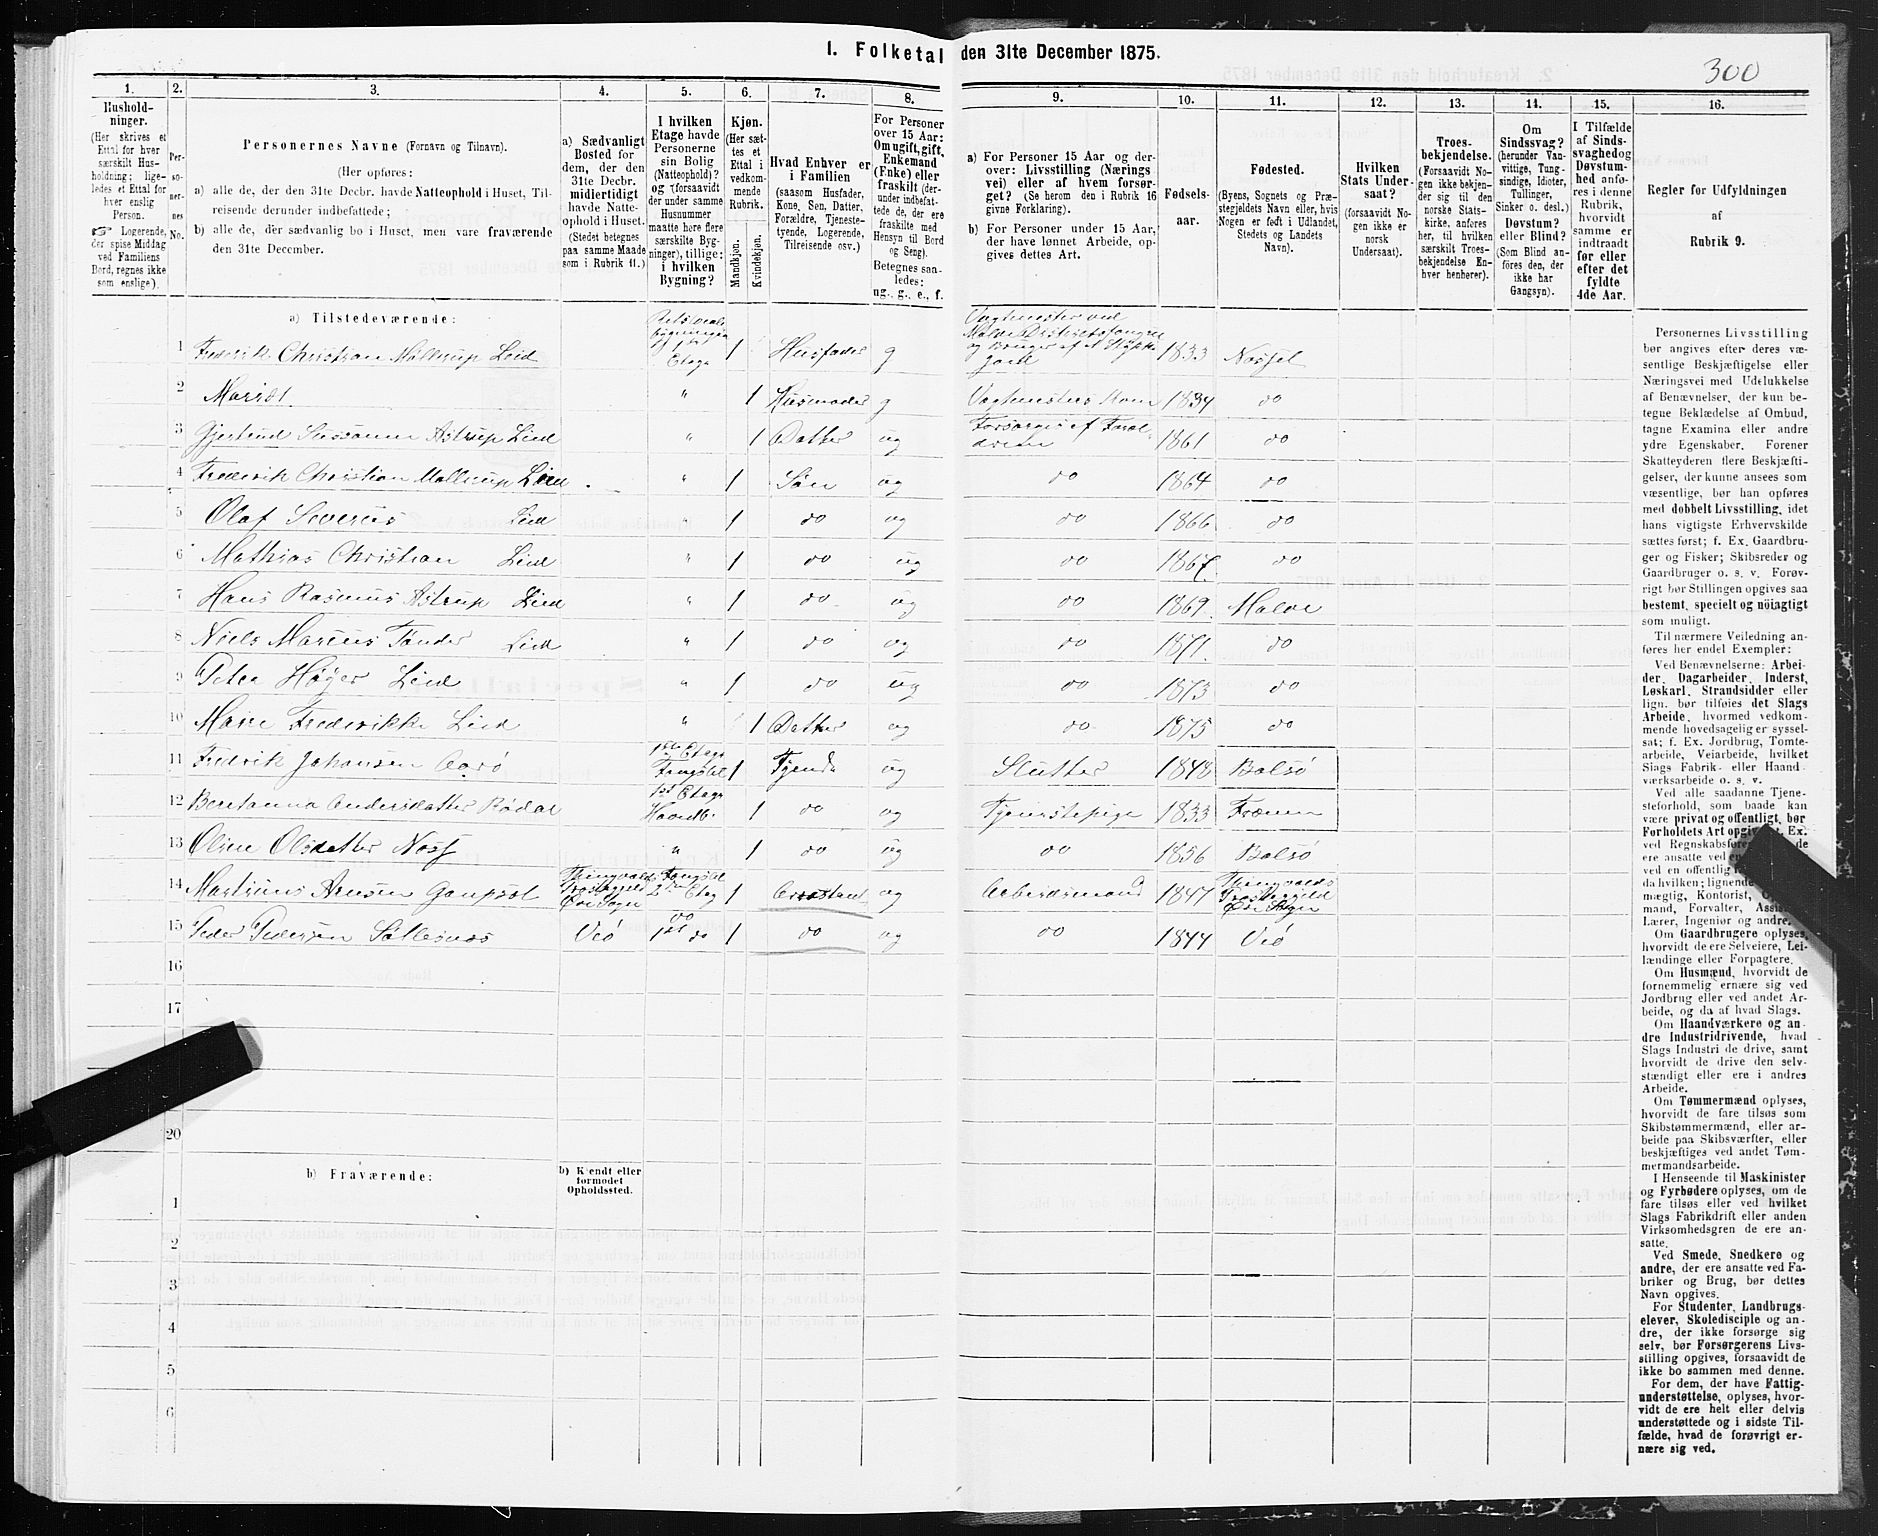 1. Folketal den 31te December 1875.
300
1. 2. 3. 4. 5. 6. 7. 8. 9. 10. 11. 12. 13. 14. 15. 16.
Hushold-
ninger.
(Her skrives et
Ettal for hver
særskilt Hus-
holdning; lige-
ledes et Ettal for
hver enslig
Person.
☞ Logerende,
der spise Middag
ved Familiens
Bord, regnes ikke
som enslige).
Per-
so-
ner-
nes
No.
Personernes Navne (Fornavn og Tilnavn).
(Her opføres:
a) alle de, der den 31te Decbr. havde Natteophold i Huset, Til-
reisende derunder indbefattede;
b) alle de, der sædvanlig bo i Huset, men vare fraværende
den 31te December.
a) Sædvanligt
Bosted for
dem, der den
31te Decbr.
midlertidigt
havde Natte-
ophold i Huset.
(Stedet betegnes
paa samme Maade
som i Rubrik 11.)
I hvilken
Etage havde
Personerne
sin Bolig
(Natteophold)?
og (forsaavidt
der under samme
Husnummer
maatte høre flere
særskilte Byg-
ninger), tillige:
i hvilken
Bygning?
Kjøn.
(Her sæt-
tes et
Ettal i
vedkom-
mende
Rubrik.
Mandkjøn.
Kvindekjøn.
Hvad Enhver er
i Familien
(saasom Husfader,
Kone, Søn, Datter,
Forældre, Tjeneste-
tyende, Logerende,
Tilreisende osv.)
For Personer
over 15 Aar:
Om ugift, gift,
Enkemand
(Enke) eller
fraskilt (der-
under indbefat-
tede de, der ere
fraskilte med
Hensyn til Bord
og Seng).
Betegnes saa-
ledes:
ug., g., e., f.
a) For Personer 15 Aar og der-
over: Livsstilling (Nærings
vei) eller af hvem forsør-
get? (Se herom den i Rubrik 16
givne Forklaring).
b) For Personer under 15 Aar,
der have lønnet Arbeide, op-
gives dettes Art.
Fødsels-
aar.
Fødested.
(Byens, Sognets og Præ-
stegjeldets Navn eller, hvis
Nogen er født i Udlandet,
Stedets og Landets
Navn).
Hvilken
Stats Under-
saat?
(forsaavidt No-
gen ikke er
norsk
Undersaat).
Troes-
bekjendelse.
(Forsaavidt No-
gen ikke bekjen-
der sig til den
norske Stats-
kirke, anføres
her, til hvilken
særskilt Troes-
bekjendelse En-
hver henhører).
Om
Sindssvag?
(herunder Van-
vittige, Tung-
sindige, Idioter,
Tullinger,
Sinker o. desl.)
Døvstum?
eller Blind?
(Som Blind an-
føres den, der
ikke har
Gangsyn).
I Tilfælde
af Sinds-
svaghed og
Døvstum-
hed anfø-
res i denne
Rubrik,
hvorvidt
samme er
indtraadt
før eller
efter det
fyldte
4de Aar.
Regler for Udfyldningen
af
Rubrik 9.
a) Tilstedeværende:
1 Frederik Christian Møllerup Lied Etage 1 Husfader g Vagtmester ved Molde 1833
2 " 1 Husmoder g Vagtmesters Kone 1834 do
3 Gjertrud Astrup Lied " 1 Datter ug Forsørges af Foræl- 1861 do
4 Frederik Christian Møllerup Lied " 1 Søn ug do 1864 do
5 Olaf Severus Lied " 1 do ug do 1866 do
6 Mathias Christian Lied " 1 do ug do 1867 do
7 Hans Rasmus Astrup Lied " 1 do ug do 1869 Molde
8 Niels Marcus Tønder Lied " 1 do ug do 1871 do
9 Peter Høyer Lied " 1 do ug do 1873 do
10 Marie Frederikke Lied " 1 Datter ug do 1875 do
11 Fredrik Johansen Aarø 1ste Etage 1 Tyende ug Slutter 1848 Bolsø
12 Beretanna Andersdatter Rødal 1ste Etage 1 do ug Tjenestepige 1833 Frænen
13 Oline Olsdatter " 1 do ug do 1856 Bolsø
14 Martinus Arnsen Thingvold Øre Sogn 2den Etag 1 Arrestant ug Arbeidsmand 1847 Thingvolds Øre Sogn
15 Peder Pedersen Veø 1ste do 1 do ug do 1844 Veø
16
17
20
b) Fraværende:
b) Kjendt eller
formodet
Opholdssted.
1
2
3
4
5
6
Personernes Livsstilling
bør angives efter deres væ-
sentlige Beskjæftigelse eller
Næringsvei med Udelukkelse
af Benævnelser, der kun be-
tegne Beklædelse af Ombud,
tagne Examina eller andre
ydre Egenskaber. Forener
Skatteyderen flere Beskjæfti-
gelser, der kunne ansees som
væsentlige, bør han opføres
med dobbelt Livsstilling, idet
hans vigtigste Erhvervskilde
sættes først; f. Ex. Gaardbru-
ger og Fisker; Skibsreder og
Gaardbruger o. s. v. Forøv-
rigt bør Stillingen opgives saa
bestemt, specielt og nöiagtigt
som muligt.
Til nærmere Veiledning an-
føres her endel Exempler:
Ved Benævnelserne: Arbei-
der, Dagarbeider, Inderst,
Løskarl, Strandsidder eller
lign. bør tilføies det Slags
Arbeide, hvormed vedkom-
mende hovedsagelig er syssel-
sat; f. Ex. Jordbrug, Tomte-
arbeide, Veiarbeide, hvilket
Slags Fabrik- eller Haand
værksarbeide o. s. v.
Ved alle saadanne Tjene-
steforhold, som baade kan
være privat og offentligt, bør
Forholdets Art
ved
ere ansatte ved
ved en offentlig
da hvilken; lignende
mægtig, Kontorist,
mand, Forvalter,
Lærer, Ingeniør og andre.
Om Gaardbrugere oplyses,
hvorvidt de ere Selveiere, Lei-
lændinge eller Forpagtere.
Om Husmænd, hvorvidt de
fornemmelig ernære sig ved
Jordbrug eller ved andet Ar-
beide, og da af hvad Slags.
Om Haandværkere og an
dre Industridrivende, hvad
Slags Industri de drive, samt
hvorvidt de drive den selv-
stændigt eller ere i andres
Arbeide.
Om Tømmermænd oplyses,
hvorvidt de fare tilsøs som
Skibstømmermænd, eller ar-
beide paa Skibsværfter, eller
beskjæftiges ved andet Tøm-
mermandsarbeide.
I Henseende til Maskinister
og Fyrbødere oplyses, om de
fare tilsøs eller ved hvilket
Slags Fabrikdrift eller anden
Virksomhedsgren de ere an-
satte.
Ved Smede, Snedkere og
andre, der ere ansatte ved Fa-
briker og Brug, bør dettes
Navn opgives.
For Studenter, Landbrugs-
elever, Skoledisciple og an-
dre, der ikke forsørge sig
selv, bør Forsørgerens Livs-
stilling opgives, forsaavidt de
ikke bo sammen med denne.
For dem, der have Fattig-
understøttelse, oplyses, hvor-
vidt de ere helt eller delvis
understøttede og i sidste Til-
fælde, hvad de forøvrigt er-
nære sig ved.